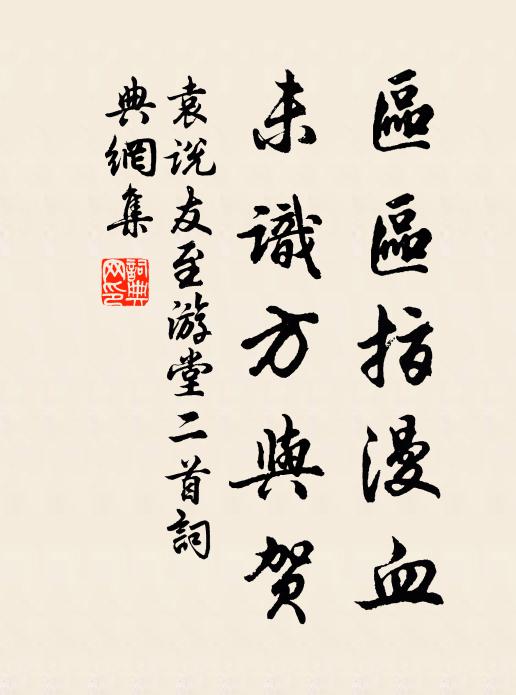 區區指漫血
未識方輿賀
袁說友至游堂二首詞
典網集
詞典網印